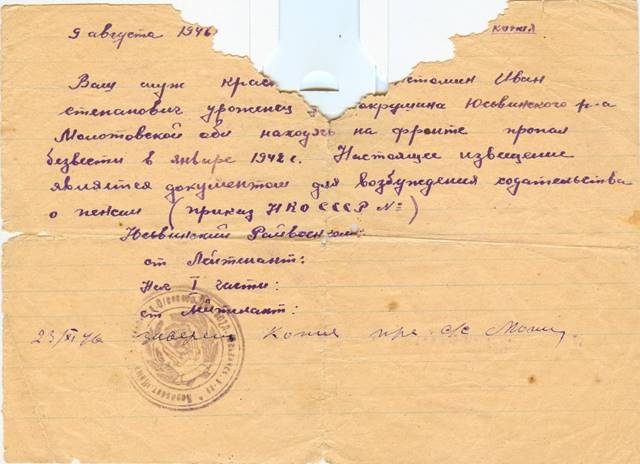 9 августа 1946 копия
Ваш муж крас стомин Иван
степанович уроженец Юсьвинского р-а
Молотовской обл находясь на фронте пропал
безвести в январе 1942 г. Настоящее извещение
является документом для возбуждения ходательства
о пенсии (приказ НКО СССР №)
Юсьвинский Райвоенком:
ст Лейтенант:
Нач I части:
ст Лейтенант:
23/XI 46 Копия пре с/с